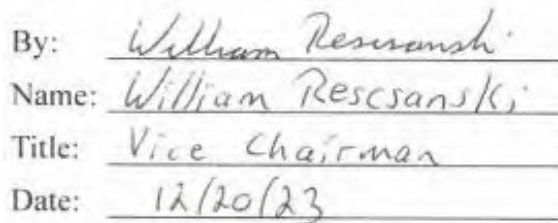 By: William Rescsanski
Name: William Rescsanski
Title: Vice Chairman
Date: 12/20/23